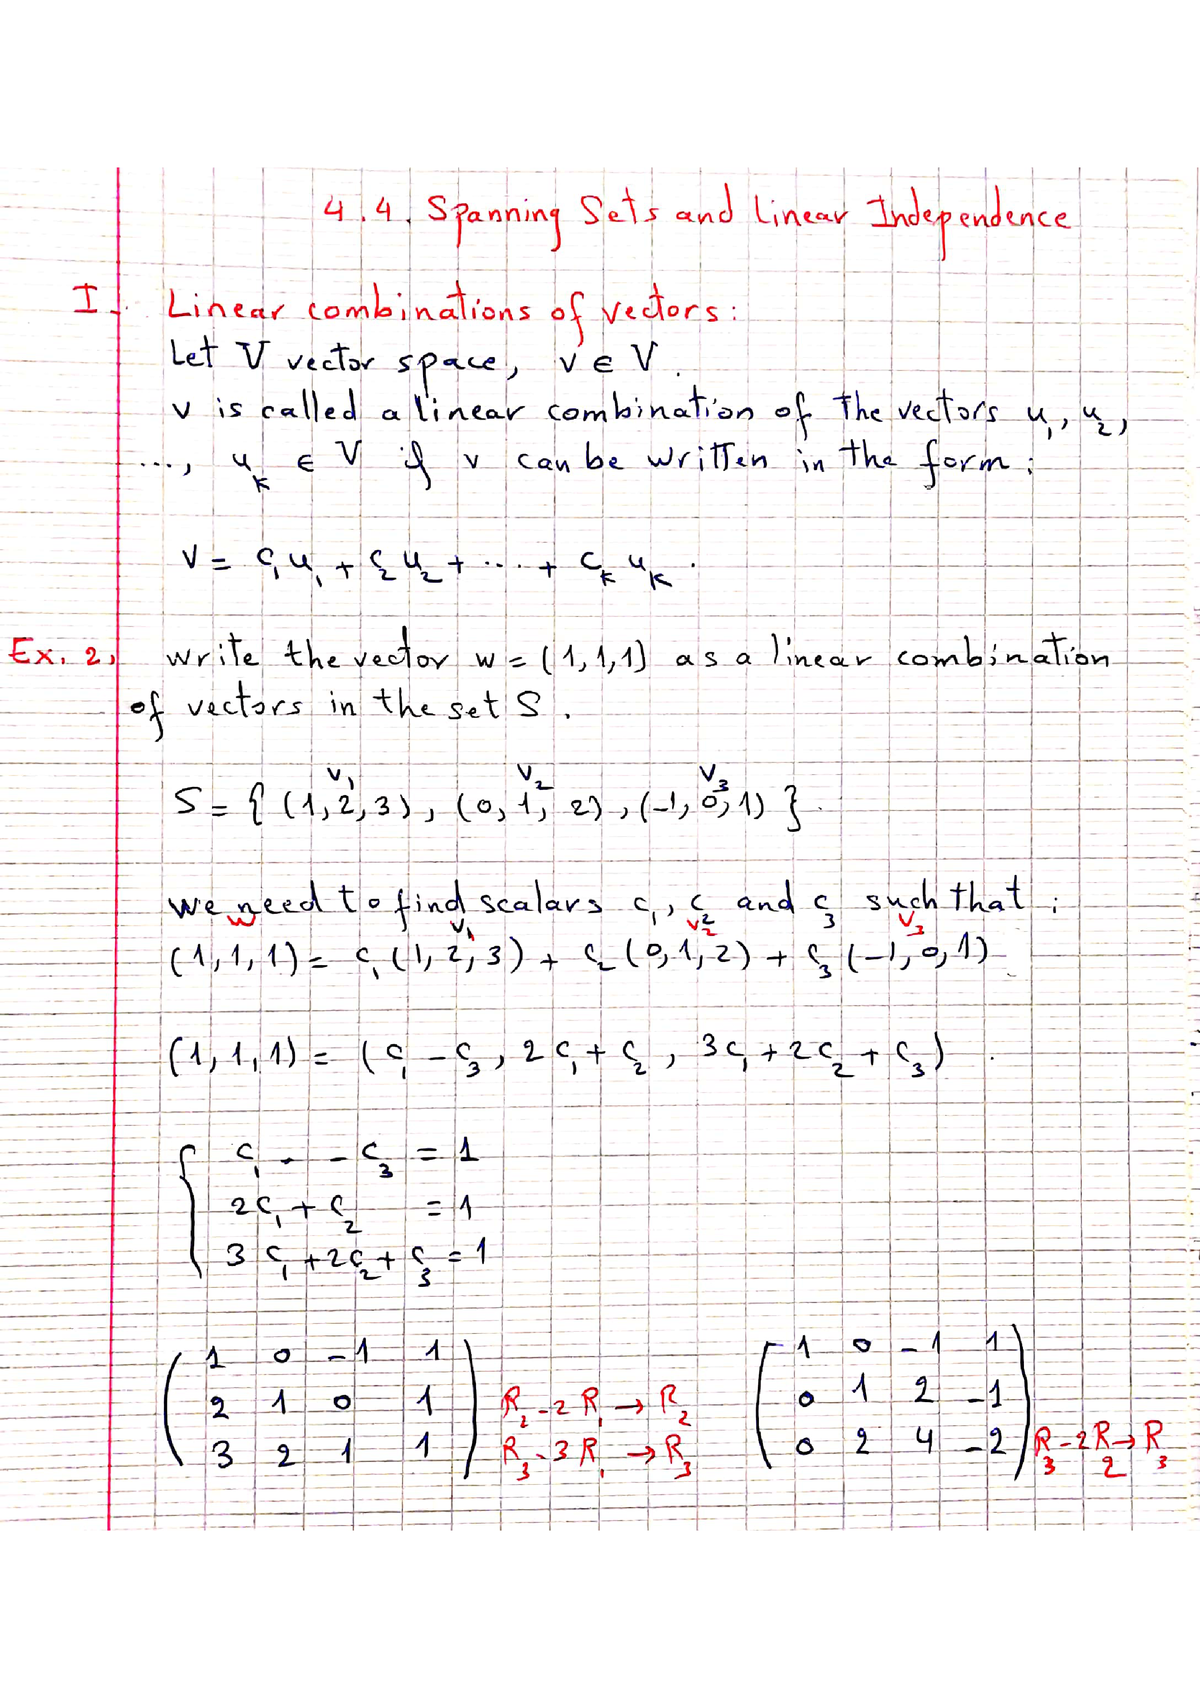 4.4. Spanning Sets and Linear Independence
I. Linear combinations of vectors:
Let V vector space, v ∈ V.
v is called a linear combination of the vectors u₁, u₂,
..., u_k ∈ V if v can be written in the form:
v = c₁u₁ + c₂u₂ + ... + c_k u_k.
Ex. 2, write the vector w = (1,1,1) as a linear combination
of vectors in the set S.
v₁ v₂ v₃
S = { (1,2,3), (0,1,2), (-1,0,1) }.
we need to find scalars c₁, c₂ and c₃ such that:
w v₁ v₂ v₃
(1,1,1) = c₁(1,2,3) + c₂(0,1,2) + c₃(-1,0,1)
(1,1,1) = (c₁ - c₃, 2c₁ + c₂, 3c₁ + 2c₂ + c₃)
c₁ - c₃ = 1
2c₁ + c₂ = 1
3c₁ + 2c₂ + c₃ = 1
1 0 -1 1
2 1 0 1 R₂ - 2R₁ → R₂
3 2 1 1 R₃ - 3R₁ → R₃
1 0 -1 1
0 1 2 -1
0 2 4 -2 R₃ - 2R₂ → R₃